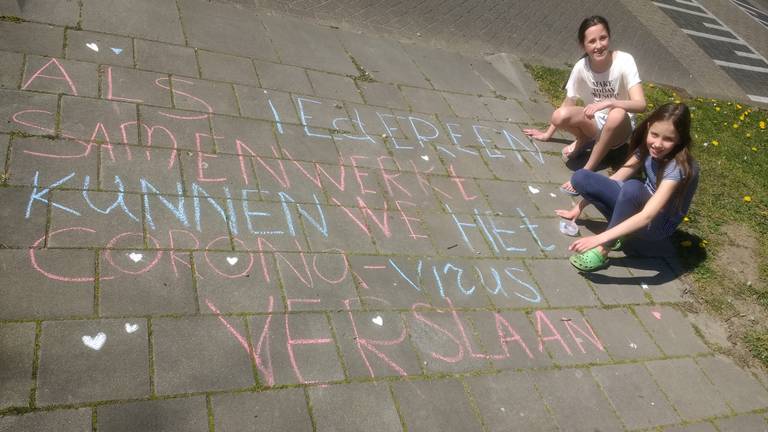 ALS IEdEREEN
SAMENWERKt
KUNNEN WE Het
CORONA-VIRUS
VERSLAAN
MAKE
TODAY